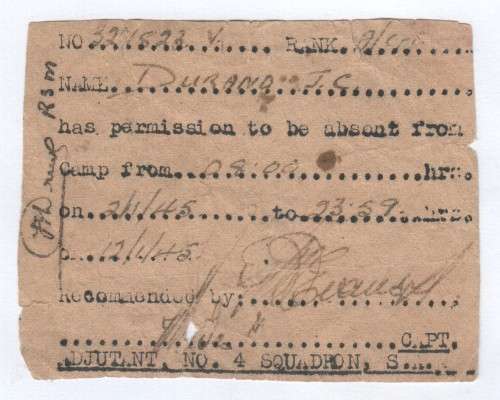 NO 327523 V. RANK
NAME DURAND J.C.
has permission to be absent from
Camp from 08:00 hrs.
on 2/1/45 to 23:59 hrs.
on 12/1/45
Recommended by:
CAPT.
ADJUTANT, NO. 4 SQUADRON, S.A.
RSM